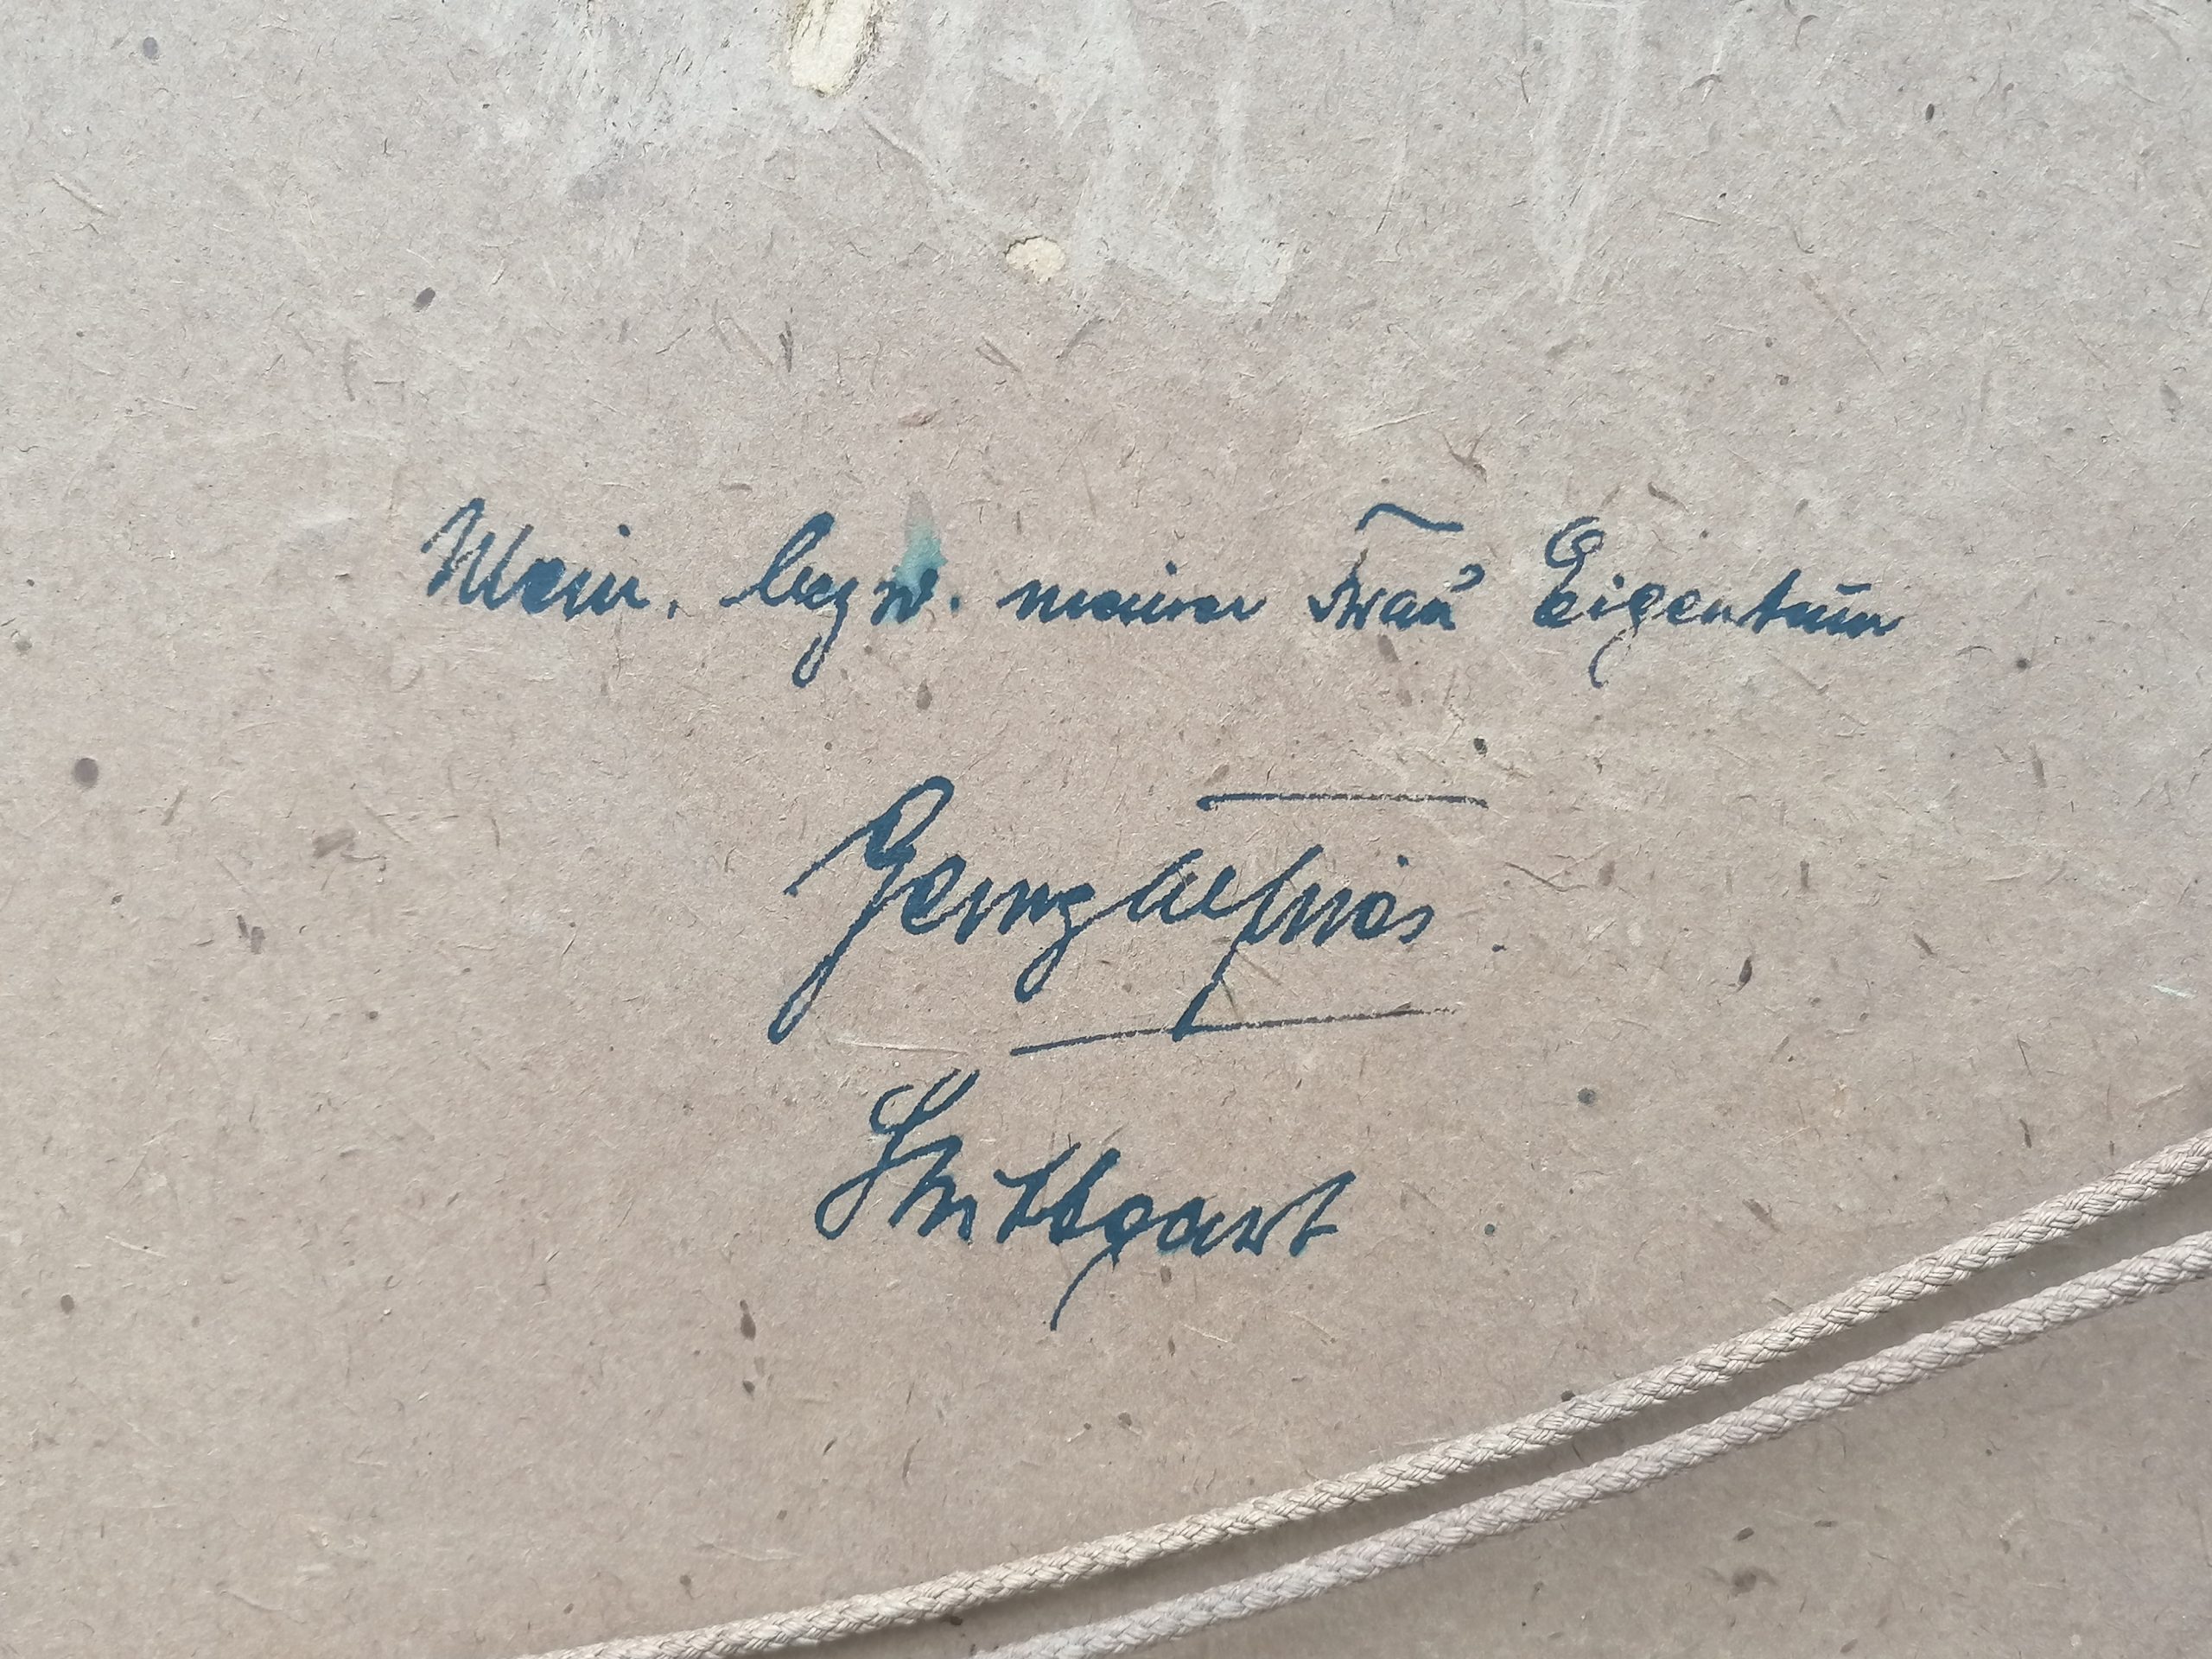 Mein. bezw. meiner Frau Eigentum
Georg
Stuttgart